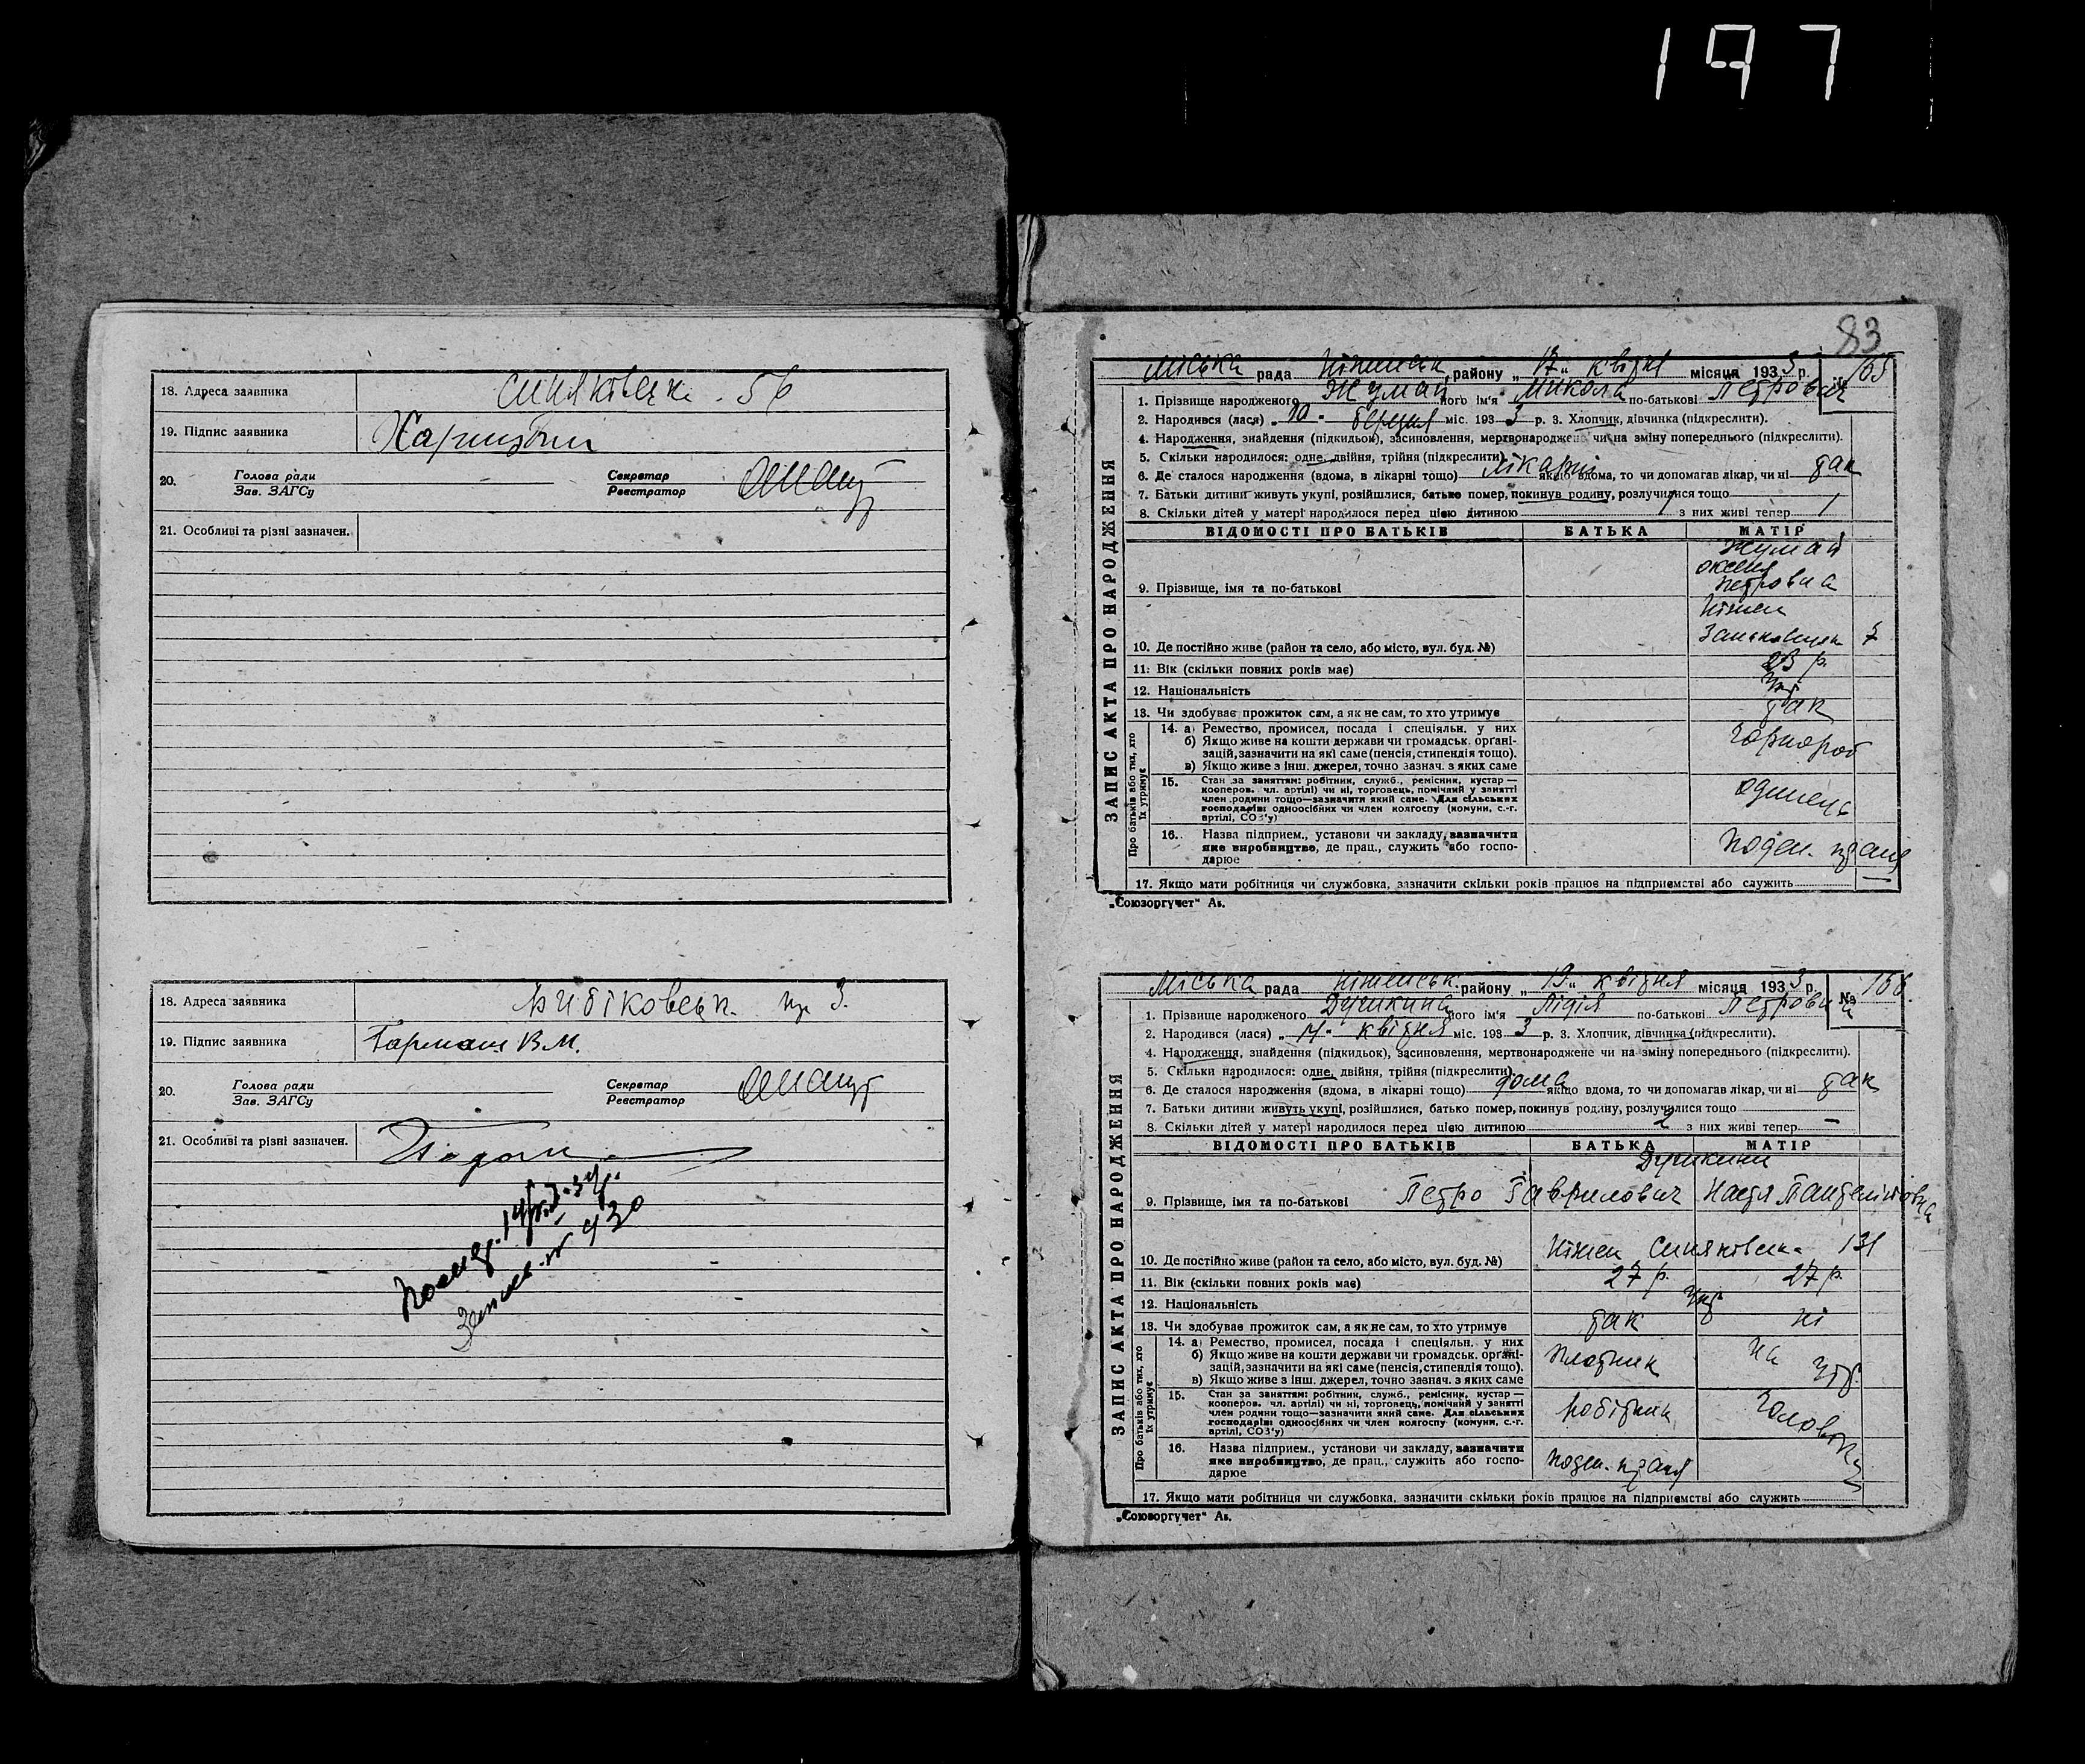 197
18. Адреса заявника Синяківська 56
19. Підпис заявника
20. Голова ради Секретар
Зав. ЗАГСу Реєстратор
21. Особливі та різні зазначен.
18. Адреса заявника
19. Підпис заявника Гармаш В.М.
20. Голова ради Секретар
Зав. ЗАГСу Реєстратор
21. Особливі та різні зазначен.
930
83
Міська рада Ніженськ. району „17“ квітня місяця 1933 р. № 165
1. Прізвище народженого Жумай його ім'я Микола по-батькові Петрович
2. Народився (лася) „10“ березня міс. 1933 р. 3. Хлопчик, дівчинка (підкреслити).
4. Народження, знайдення (підкидьок), засиновлення, мертвонароджене чи на зміну попереднього (підкреслити).
5. Скільки народилося: одне, двійня, трійня (підкреслити)
6. Де сталося народження (вдома, в лікарні тощо) лікарні якщо вдома, то чи допомагав лікар, чи ні так
7. Батьки дитини живуть укупі, розійшлися, батько помер, покинув родину, розлучилися тощо
8. Скільки дітей у матері народилося перед цією дитиною 1 з них живі тепер 1
ЗАПИС АКТА ПРО НАРОДЖЕННЯ
ВІДОМОСТІ ПРО БАТЬКІВ БАТЬКА МАТІР
Жумай
Оксеня
Петровна
9. Прізвище, імя та по-батькові
Ніжен
10. Де постійно живе (район та село, або місто, вул. буд. №)
11. Вік (скільки повних років має) 23 р.
12. Національність Укр
13. Чи здобуває прожиток сам, а як не сам, то хто утримує так
Про батьків або тих, хто їх утримує
14. а) Ремество, промисел, посада і спеціяльн. у них Чорнороб
б) Якщо живе на кошти держави чи громадськ. органі-
зацій, зазначити на які саме (пенсія, стипендія тощо).
в) Якщо живе з інш. джерел, точно зазнач. з яких саме
15. Стан за заняттям: робітник, служб., ремісник, кустар — одинець
кооперов. чл. артілі) чи ні, торговець, помічний у занятті
член родини тощо—зазначити який саме. Для сільських
господарів: одноосібних чи член колгоспу (комуни, с.-г.
артілі, СОЗ'у)
16. Назва підприєм., установи чи закладу, зазначити поден. праця
яке виробництво, де прац., служить або госпо-
дарює
17. Якщо мати робітниця чи службовка, зазначити скільки років працює на підприємстві або служить —
„Союзоргучет“ Ав.
Міська рада Ніженськ. району „19“ квітня місяця 1933 р. № 166.
1. Прізвище народженого Душкина його ім'я Лідія по-батькові Петровна
2. Народився (лася) квітня міс. 1933 р. 3. Хлопчик, дівчинка (підкреслити).
4. Народження, знайдення (підкидьок), засиновлення, мертвонароджене чи на зміну попереднього (підкреслити).
5. Скільки народилося: одне, двійня, трійня (підкреслити)
6. Де сталося народження (вдома, в лікарні тощо) дома якщо вдома, то чи допомагав лікар, чи ні так
7. Батьки дитини живуть укупі, розійшлися, батько помер, покинув родину, розлучилися тощо
8. Скільки дітей у матері народилося перед цією дитиною 2 з них живі тепер –
ЗАПИС АКТА ПРО НАРОДЖЕННЯ
ВІДОМОСТІ ПРО БАТЬКІВ БАТЬКА МАТІР
Душкини
9. Прізвище, імя та по-батькові Петро Гаврилович Настя
10. Де постійно живе (район та село, або місто, вул. буд. №) Ніжен Синяківська 131
11. Вік (скільки повних років має) 27 р. 27 р.
12. Національність Укр
13. Чи здобуває прожиток сам, а як не сам, то хто утримує так ні
Про батьків або тих, хто їх утримує
14. а) Ремество, промисел, посада і спеціяльн. у них плотник на утр.
б) Якщо живе на кошти держави чи громадськ. органі-
зацій, зазначити на які саме (пенсія, стипендія тощо).
в) Якщо живе з інш. джерел, точно зазнач. з яких саме
15. Стан за заняттям: робітник, служб., ремісник, кустар — робітник
кооперов. чл. артілі) чи ні, торговець, помічний у занятті
член родини тощо—зазначити який саме. Для сільських
господарів: одноосібних чи член колгоспу (комуни, с.-г.
артілі, СОЗ'у)
16. Назва підприєм., установи чи закладу, зазначити поден. праця
яке виробництво, де прац., служить або госпо-
дарює
17. Якщо мати робітниця чи службовка, зазначити скільки років працює на підприємстві або служить
„Союзоргучет“ Ав.